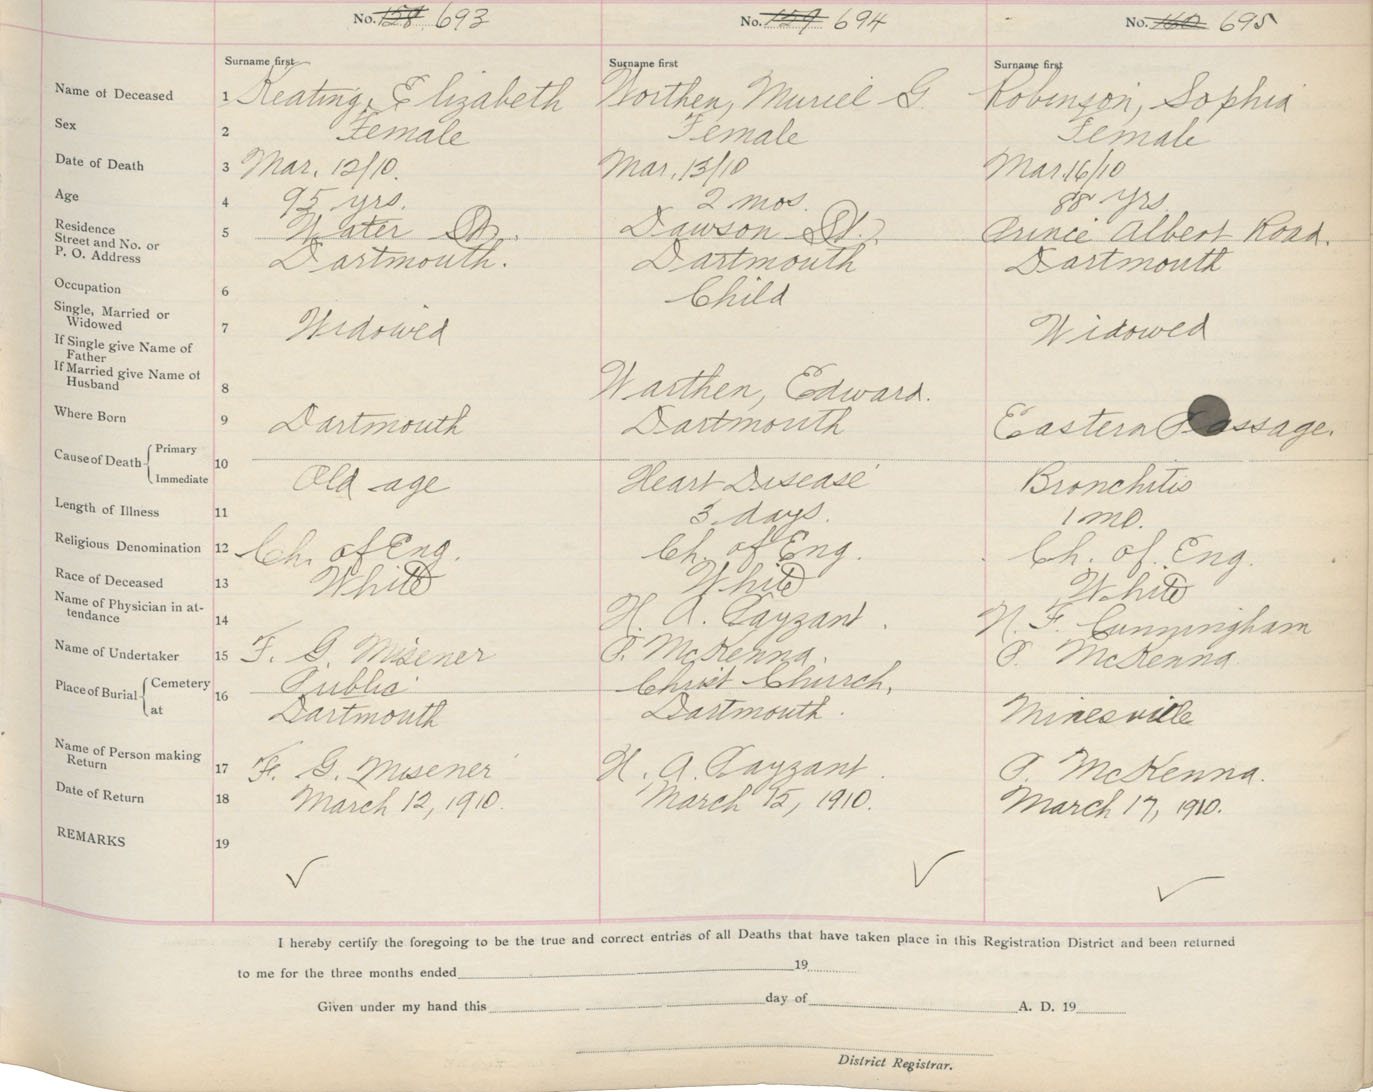 No. 158 693 No. 159 694 No. 160 695
Surname first Surname first Surname first
Name of Deceased 1 Keating, Elizabeth Worthen, Muriel G. Robinson, Sophia
Sex 2 Female Female Female
Date of Death 3 Mar. 12/10. Mar. 13/10 Mar. 16/10
Age 4 95 yrs. 2 mos. 88 yrs
Residence
Street and No. or 5 Water St. Dawson St. Prince Albert Road.
P. O. Address Dartmouth. Dartmouth Dartmouth
Occupation 6 Child
Single, Married or
Widowed 7 Widowed Widowed
If Single give Name of
Father
If Married give Name of
Husband 8 Warthen, Edward.
Where Born 9 Dartmouth Dartmouth Eastern Passage.
Cause of Death Primary 10
Immediate Old age Heart Disease Bronchitis
Length of Illness 11 3 days. 1 mo.
Religious Denomination 12 Ch. of Eng. Ch. of Eng. Ch. of Eng.
Race of Deceased 13 White White White
Name of Physician in at-
tendance 14 H. A. Payzant. N. F. Cunningham
Name of Undertaker 15 F. G. Misener P. McKenna. P. McKenna
Place of Burial Cemetery 16 Public Christ Church,
at Dartmouth Dartmouth. Minesville
Name of Person making
Return 17 F. G. Misener H. A. Payzant. P. McKenna.
Date of Return 18 March 12, 1910. March 15, 1910. March 17, 1910.
REMARKS 19
I hereby certify the foregoing to be the true and correct entries of all Deaths that have taken place in this Registration District and been returned
to me for the three months ended 19
Given under my hand this day of A. D. 19
District Registrar.